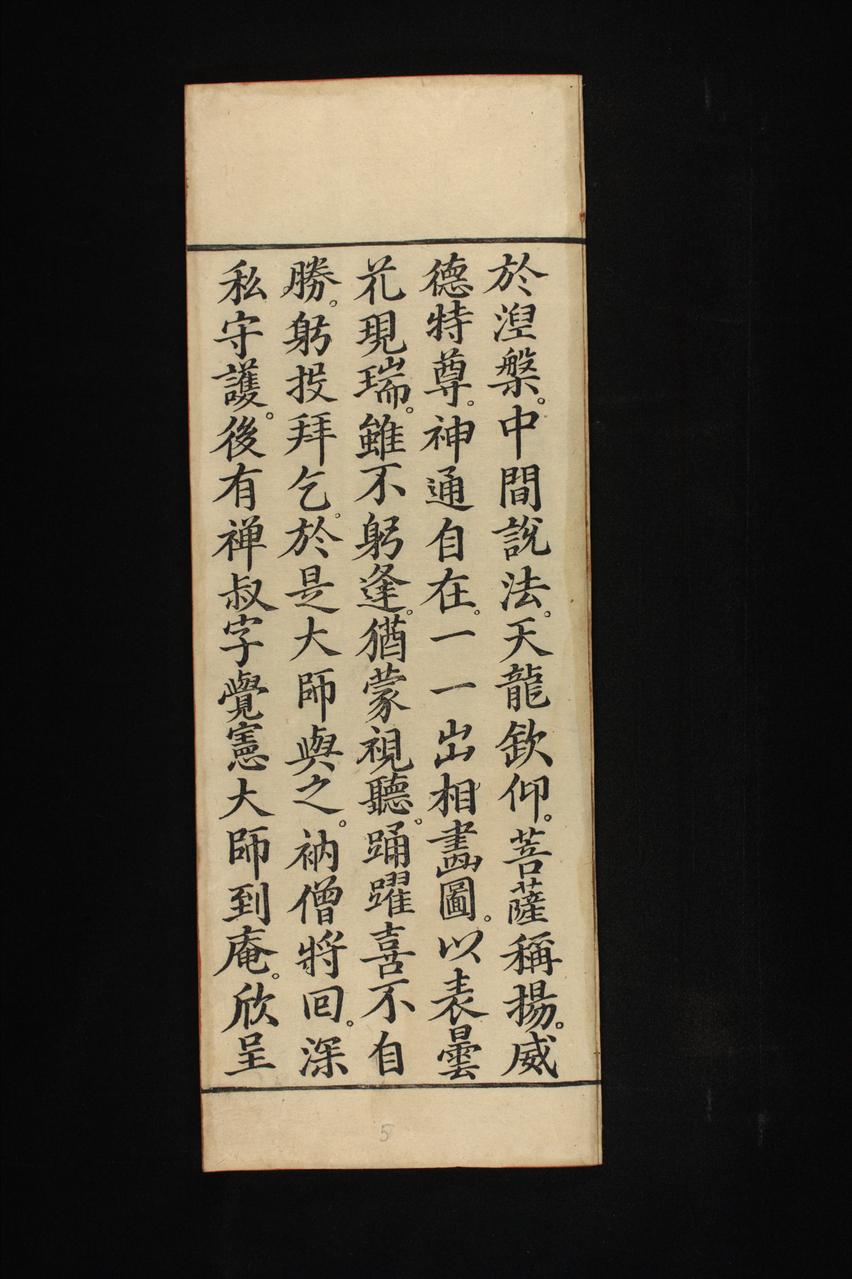 於涅槃。中間說法。天龍欽仰。菩薩稱揚。威
德特尊。神通自在。一一出相畫圖。以表曇
花現瑞。雖不躬逢。猶蒙視聽。踊躍喜不自
勝。躬投拜乞。於是大師與之。衲僧將回。深
私守護。後有禅叔字覺憲大師到庵。欣呈
5